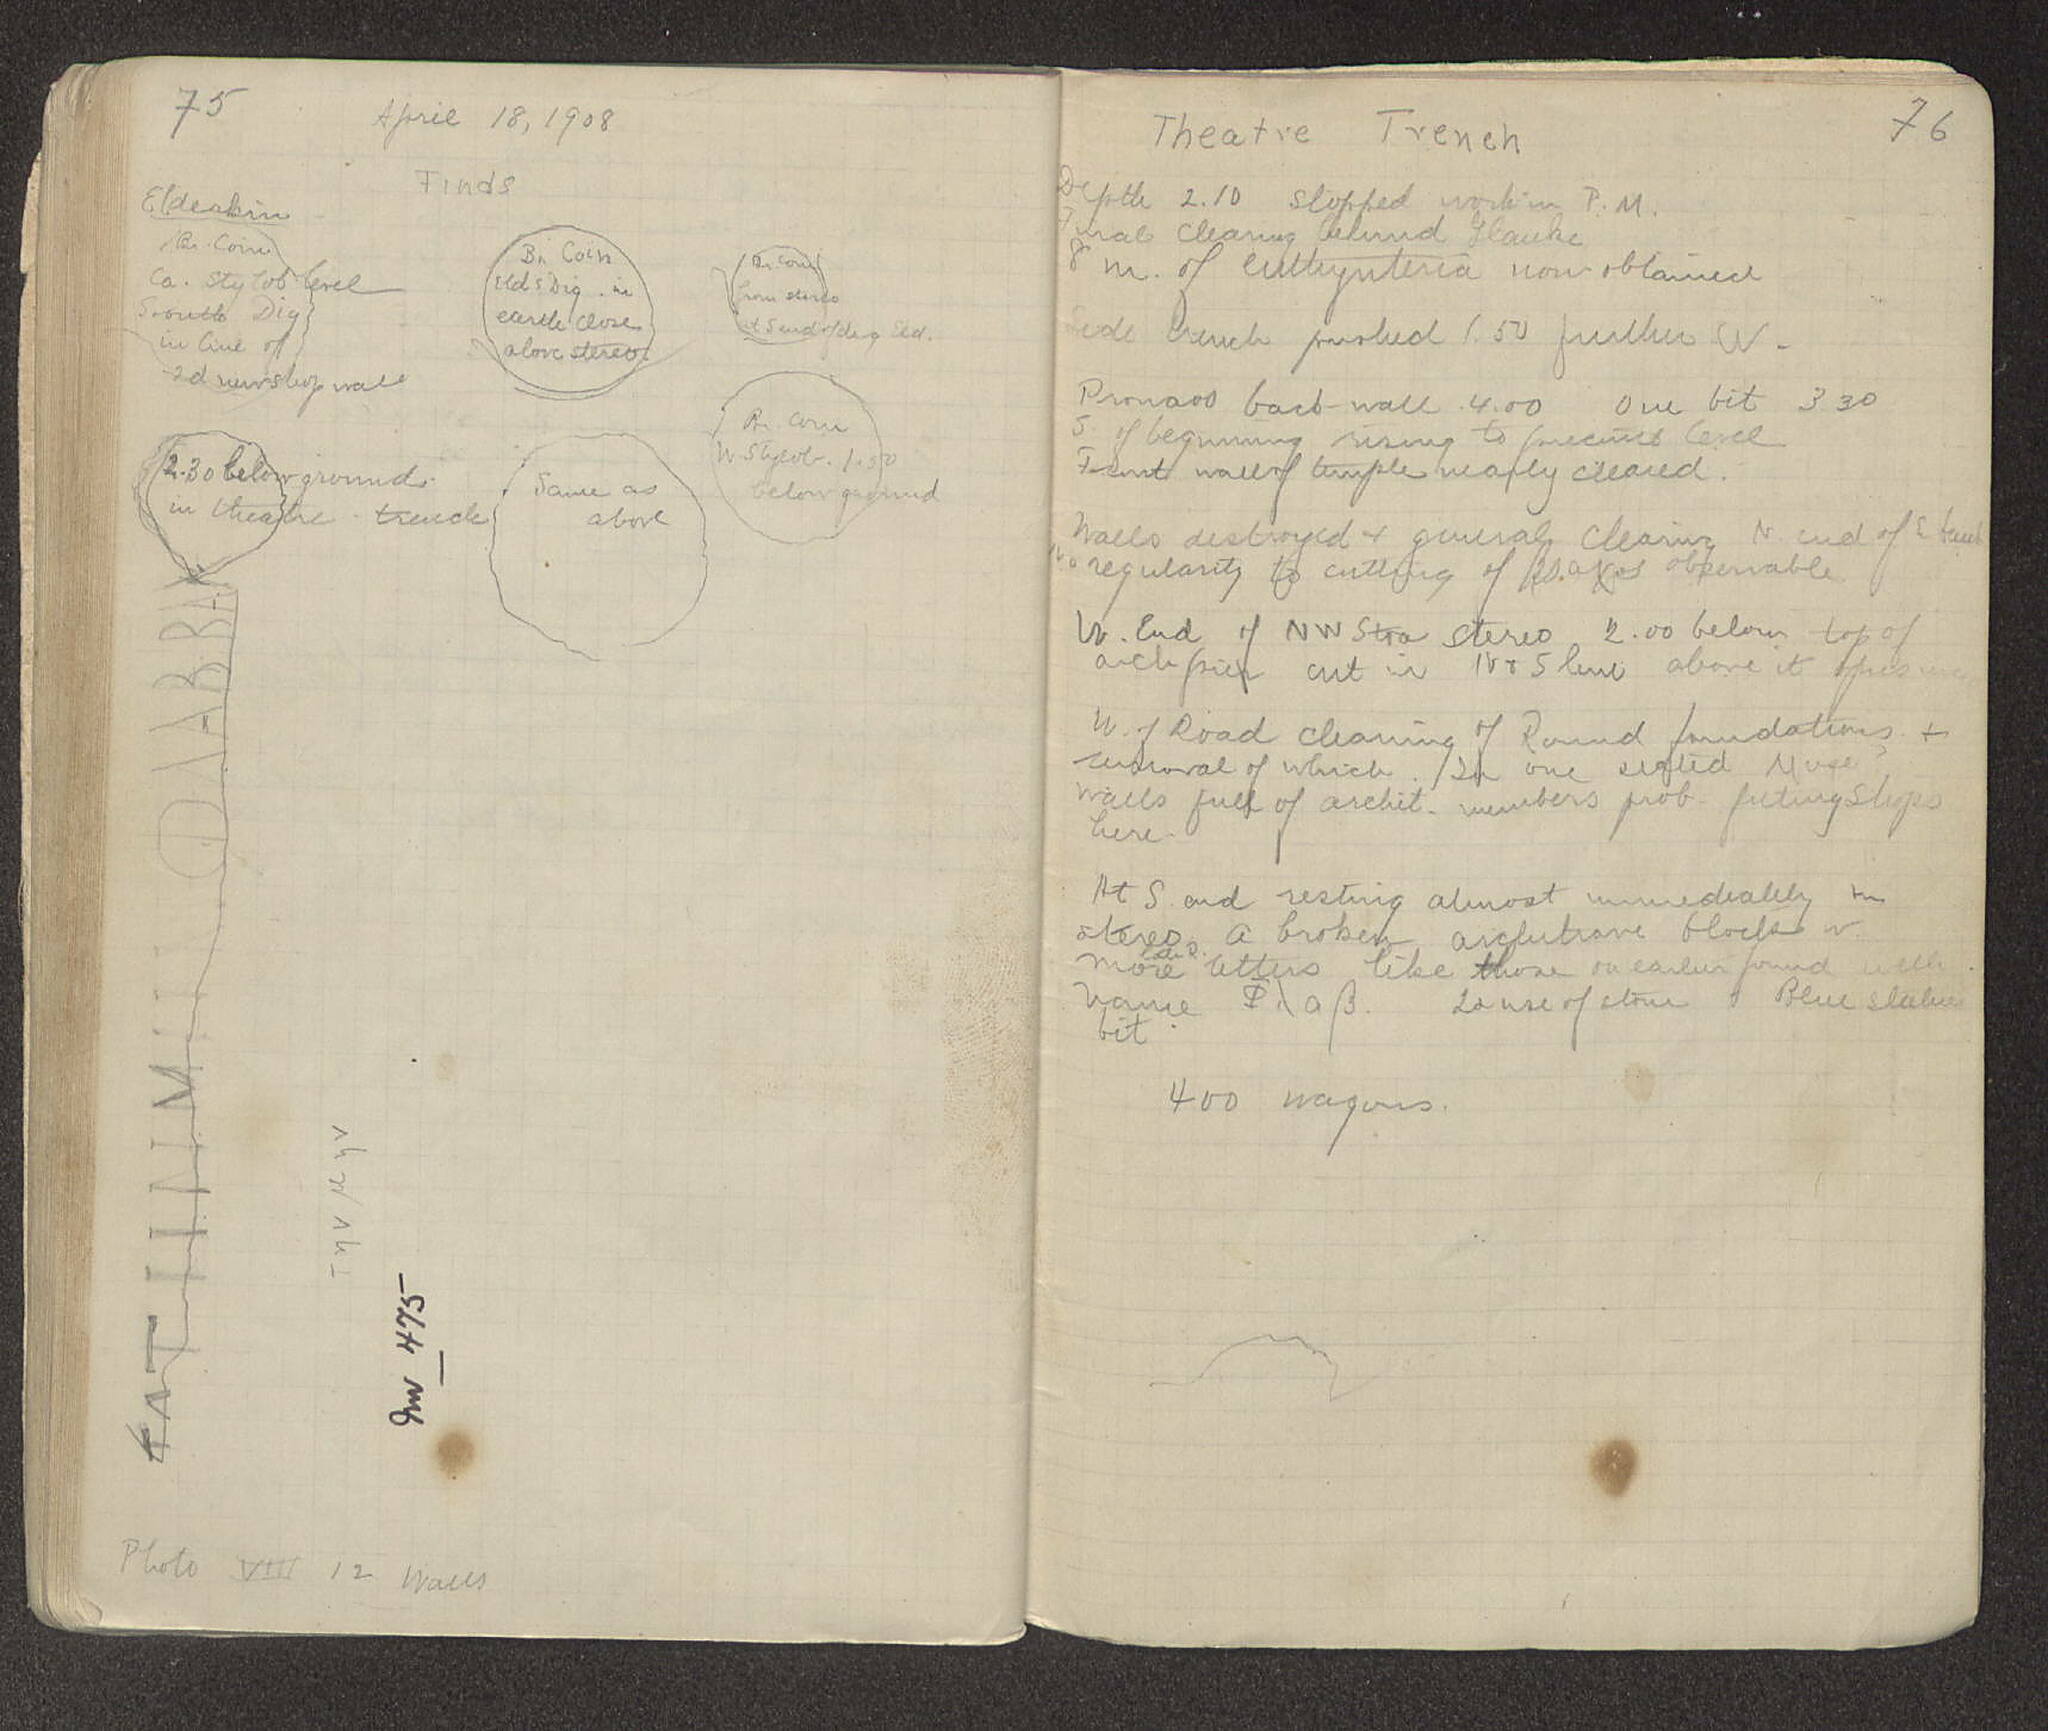 75
April 18, 1908
Finds
Elderkin
Br. Coin
Ca. Stylob. level
South Dig
in line of
2d new shop wall
Br. Coin
Eld's Dig. in
earth close
above stereo
Br. Coin
from stereo
at S end of dig Eld.
2.30 below ground
in theatre trench
Same as
above
Br. Coin
W. Stylob. 1.50
below ground
ΦΛΑΒΒΑ
την μην
Inv 475
Photo VIII 12 Walls
76
Theatre Trench
Depth 2.10 stopped work in P.M.
Final clearing behind Glauke
8 m. of euthynteria now obtained
Side trench pushed 1.50 further W.
Pronaos back-wall 4.00 One bit 3 30
S. of beginning rising to precinct level
Front wall of temple nearly cleared.
Walls destroyed + general clearing N. end of E
No regularity to cutting of observable
W. End of NW Stoa stereo 2.00 below top of
arch pier cut in N + S line above it
W. of Road clearing of Round foundations +
removal of which. In one seated Muse?
Walls full of archit. members prob. fitting Shops
here.
At S. end resting almost immediately on
stereo a broken architrave block w.
more letters like those on earlier found with
name Φλαβ. 2d use of stone Blue
bit.
400 wagons.